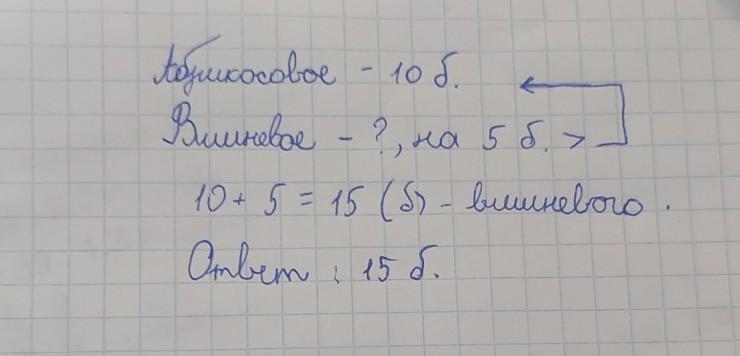 Абрикосовое - 10 б.
Вишневое - ?, на 5 б. >
10 + 5 = 15 (б) - вишневого.
Ответ : 15 б.